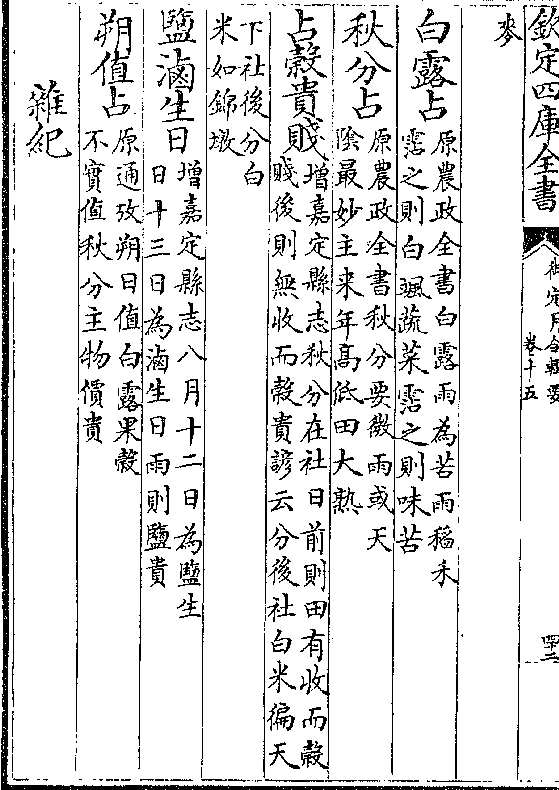 欽定四庫全書
御定月令輯要
卷十五
四十二
麥
白露占
原農政全書白露雨為苦雨稻禾
霑之則白颯蔬菜霑之則味苦
秋分占
原農政全書秋分要微雨或天
陰最妙主來年髙低田大熟
占穀貴賤
增嘉定縣志秋分在社日前則田有收而穀
賤後則無收而穀貴諺云分後社白米徧天
下社後分白
米如錦墩
鹽滷生日
增嘉定縣志八月十二日為鹽生
日十三日為滷生日雨則鹽貴
朔值占
原通攷朔日值白露果穀
不實值秋分主物價貴
雜紀